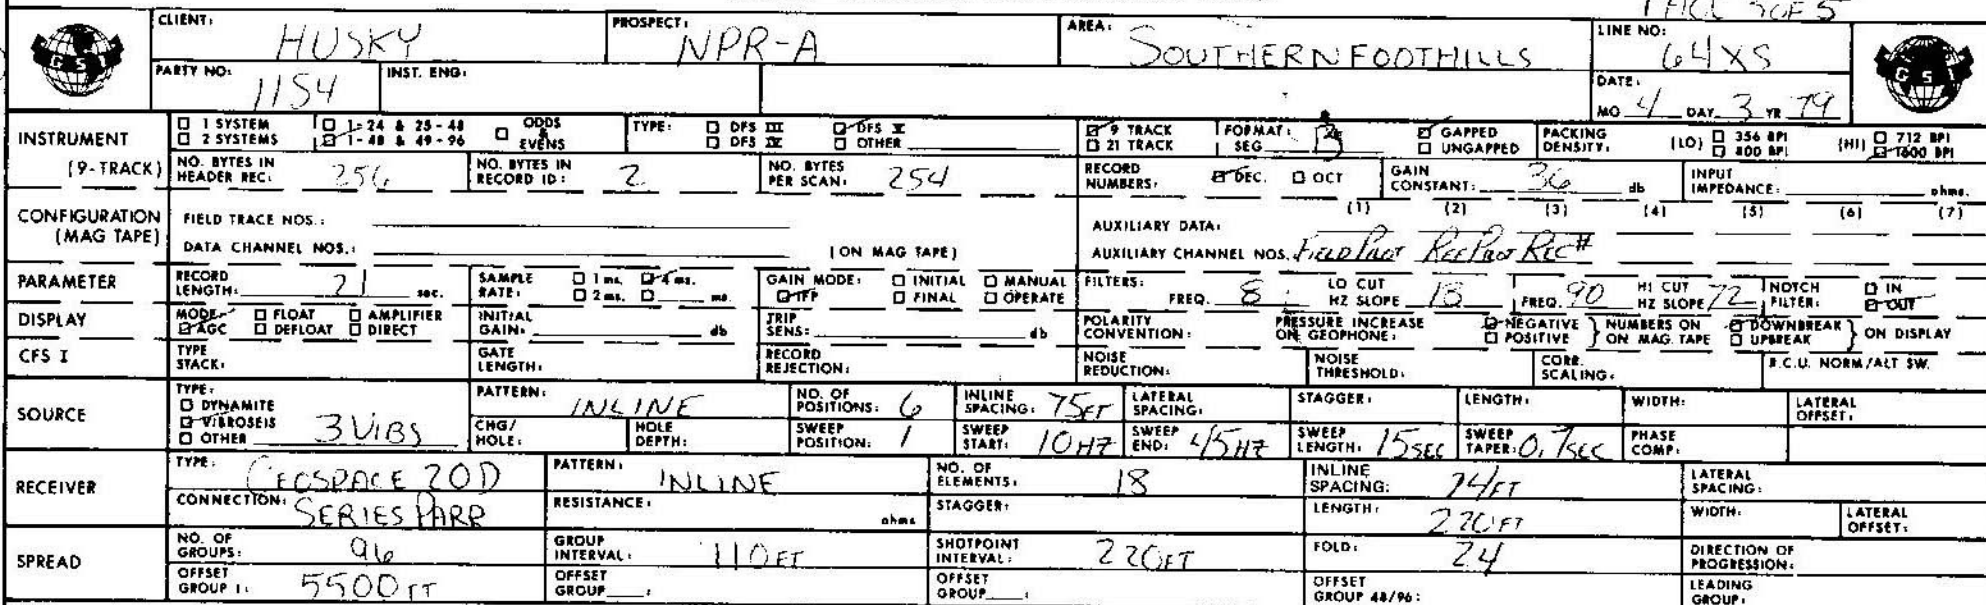 PAGE 3 OF 5
CLIENT: HUSKY PROSPECT: NPR-A AREA: SOUTHERN FOOTHILLS LINE NO: 64XS
GSI GSI
PARTY NO: 1154 INST. ENG: DATE: MO 4 DAY 3 YR 79
INSTRUMENT 1 SYSTEM 1-24 & 25-48 ODDS & EVENS TYPE: DFS III DFS V 9 TRACK FORMAT: SEG B GAPPED PACKING DENSITY: (LO) 356 BPI (HI) 712 BPI
2 SYSTEMS 1-48 & 49-96 DFS IV OTHER 21 TRACK UNGAPPED 800 BPI 1600 BPI
(9-TRACK) NO. BYTES IN HEADER REC: 256 NO. BYTES IN RECORD ID: 2 NO. BYTES PER SCAN: 254 RECORD NUMBERS: DEC. OCT GAIN CONSTANT: 36 db INPUT IMPEDANCE: ohms.
CONFIGURATION (MAG TAPE) FIELD TRACE NOS.: AUXILIARY DATA: (1) (2) (3) (4) (5) (6) (7)
DATA CHANNEL NOS.: (ON MAG TAPE) AUXILIARY CHANNEL NOS. FIELD REC REC#
PARAMETER RECORD LENGTH: 21 sec. SAMPLE RATE: 1 ms. 4 ms. 2 ms. ms. GAIN MODE: INITIAL MANUAL IFP FINAL OPERATE FILTERS: FREQ. 8 LO CUT HZ SLOPE 18 FREQ. 90 HI CUT HZ SLOPE 72 NOTCH FILTER: IN OUT
DISPLAY MODE- FLOAT AMPLIFIER AGC DEFLOAT DIRECT INITIAL GAIN: db TRIP SENS: db POLARITY CONVENTION: PRESSURE INCREASE ON GEOPHONE: NEGATIVE POSITIVE } NUMBERS ON MAG. TAPE DOWNBREAK UPBREAK } ON DISPLAY
CFS I TYPE STACK: GATE LENGTH: RECORD REJECTION: NOISE REDUCTION: NOISE THRESHOLD: CORR. SCALING: R.C.U. NORM/ALT SW.
SOURCE TYPE: DYNAMITE VIBROSEIS OTHER 3 VIBS PATTERN: INLINE NO. OF POSITIONS: 6 INLINE SPACING: 75FT LATERAL SPACING: STAGGER: LENGTH: WIDTH: LATERAL OFFSET:
CHG/HOLE: HOLE DEPTH: SWEEP POSITION: 1 SWEEP START: 10HZ SWEEP END: 45HZ SWEEP LENGTH: 15SEC SWEEP TAPER: 0.7SEC PHASE COMP:
RECEIVER TYPE: GEOSPACE 20D PATTERN: INLINE NO. OF ELEMENTS: 18 INLINE SPACING: 24FT LATERAL SPACING:
CONNECTION: SERIES PARR RESISTANCE: ohms STAGGER: LENGTH: 220FT WIDTH: LATERAL OFFSET:
SPREAD NO. OF GROUPS: 96 GROUP INTERVAL: 110FT SHOTPOINT INTERVAL: 220FT FOLD: 24 DIRECTION OF PROGRESSION:
OFFSET GROUP 1: 5500FT OFFSET GROUP : OFFSET GROUP : OFFSET GROUP 48/96: LEADING GROUP: